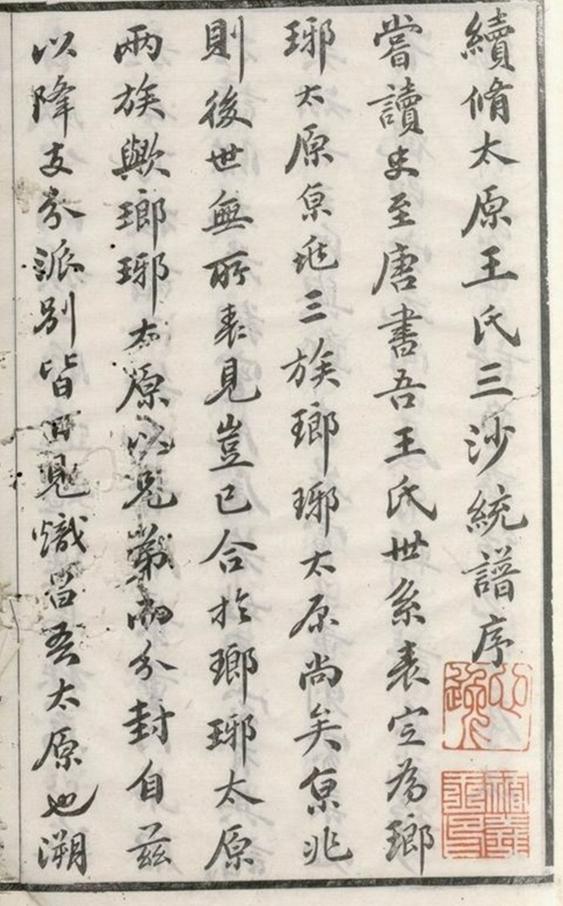 續脩太原王氏三沙統譜序
嘗讀史至唐書吾王氏世系表定為瑯
琊太原京兆三族瑯琊太原尚矣京兆
則後世無所表見豈已合於瑯琊太原
兩族歟瑯琊太原以兄弟兩分封自茲
以降支分派別皆可見熾昌吾太原也溯